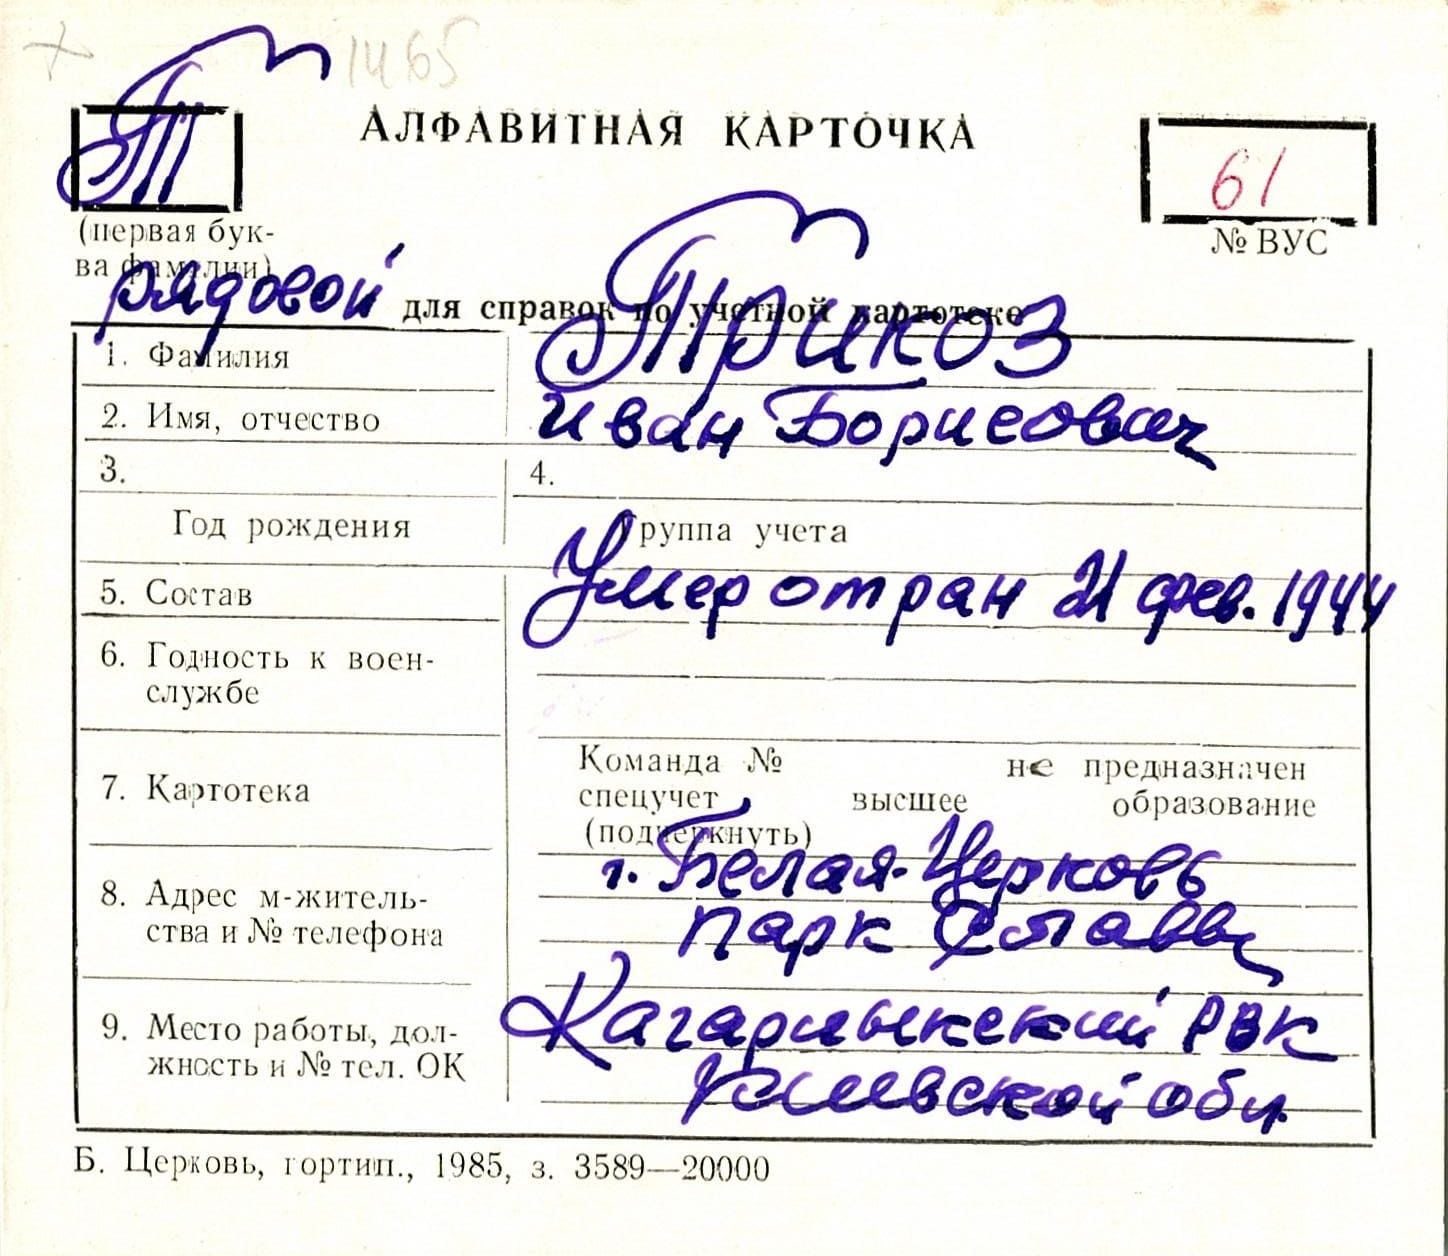 1465
Т
АЛФАВИТНАЯ КАРТОЧКА
61
(первая бук-
ва фамилии)
№ ВУС
рядовой
для справок по учетной картотеке
1. Фамилия
Трикоз
2. Имя, отчество
Иван Борисович
3.
4.
Год рождения
Группа учета
5. Состав
Умер от ран 21 фев. 1944
6. Годность к воен-
службе
7. Картотека
Команда № не предназначен
спецучет высшее образование
(подчеркнуть)
8. Адрес м-житель-
ства и № телефона
г. Белая-Церковь
парк Славы
9. Место работы, дол-
жность и № тел. ОК
Кагарлыкский РВК
Киевской обл.
Б. Церковь, гортип., 1985, з. 3589—20000